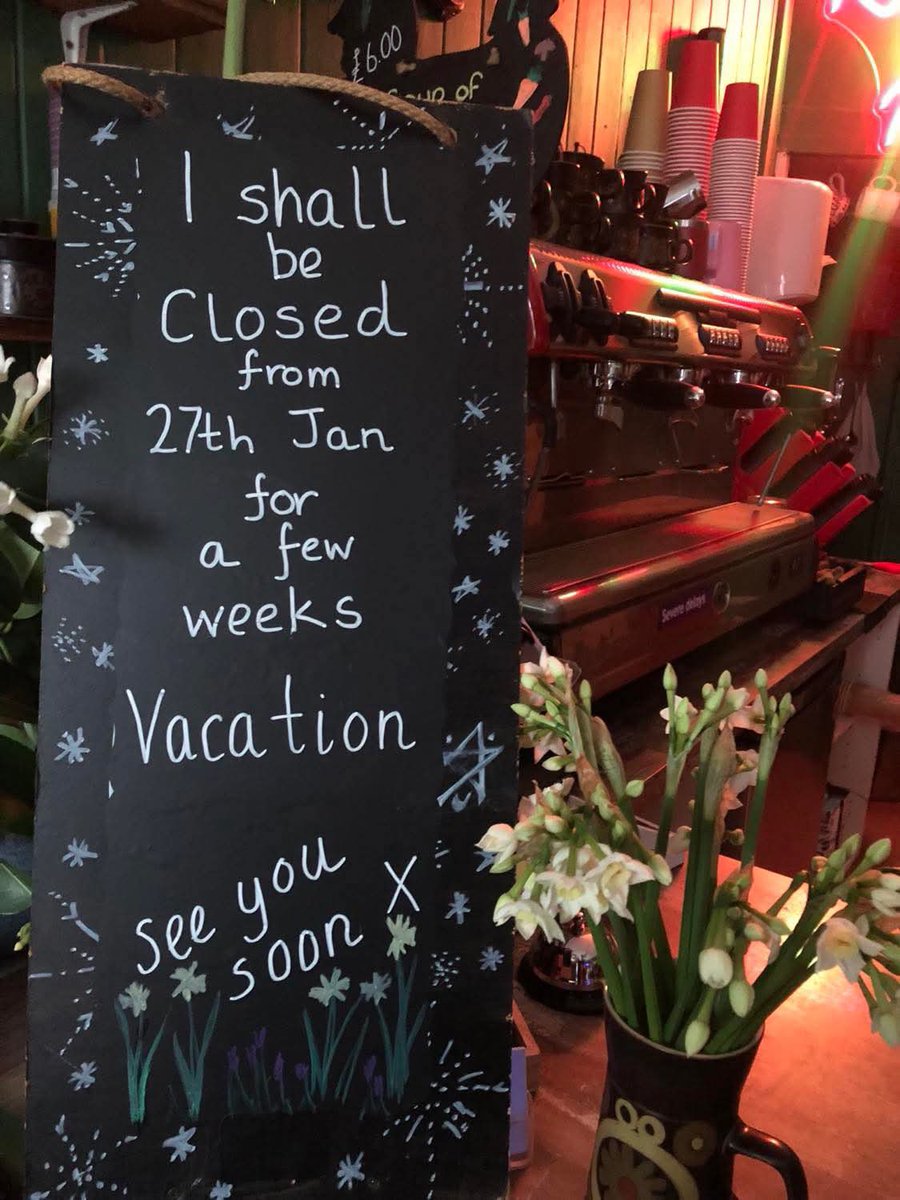 £6.00
Soup of
I shall
be
Closed
from
27th Jan
for
a few
weeks
Vacation
See you
soon X
Severe delays